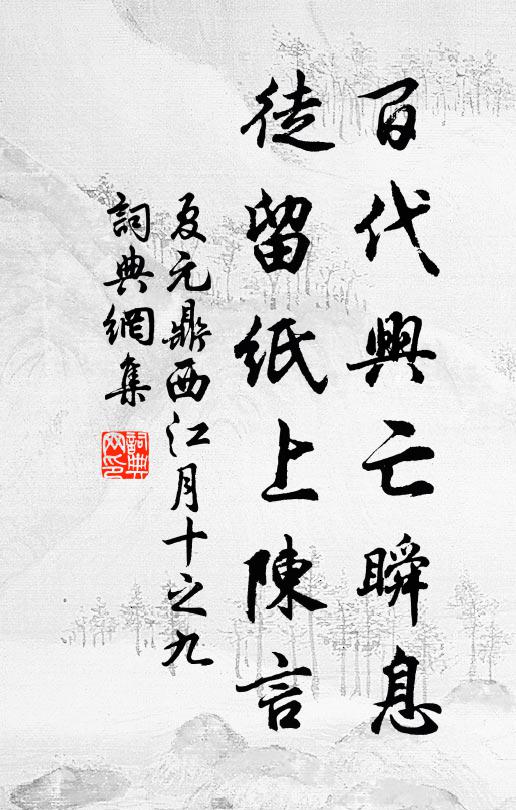 百代興亡瞬息
徒留紙上陳言
夏元鼎西江月十之九
詞典網集
詞典網印